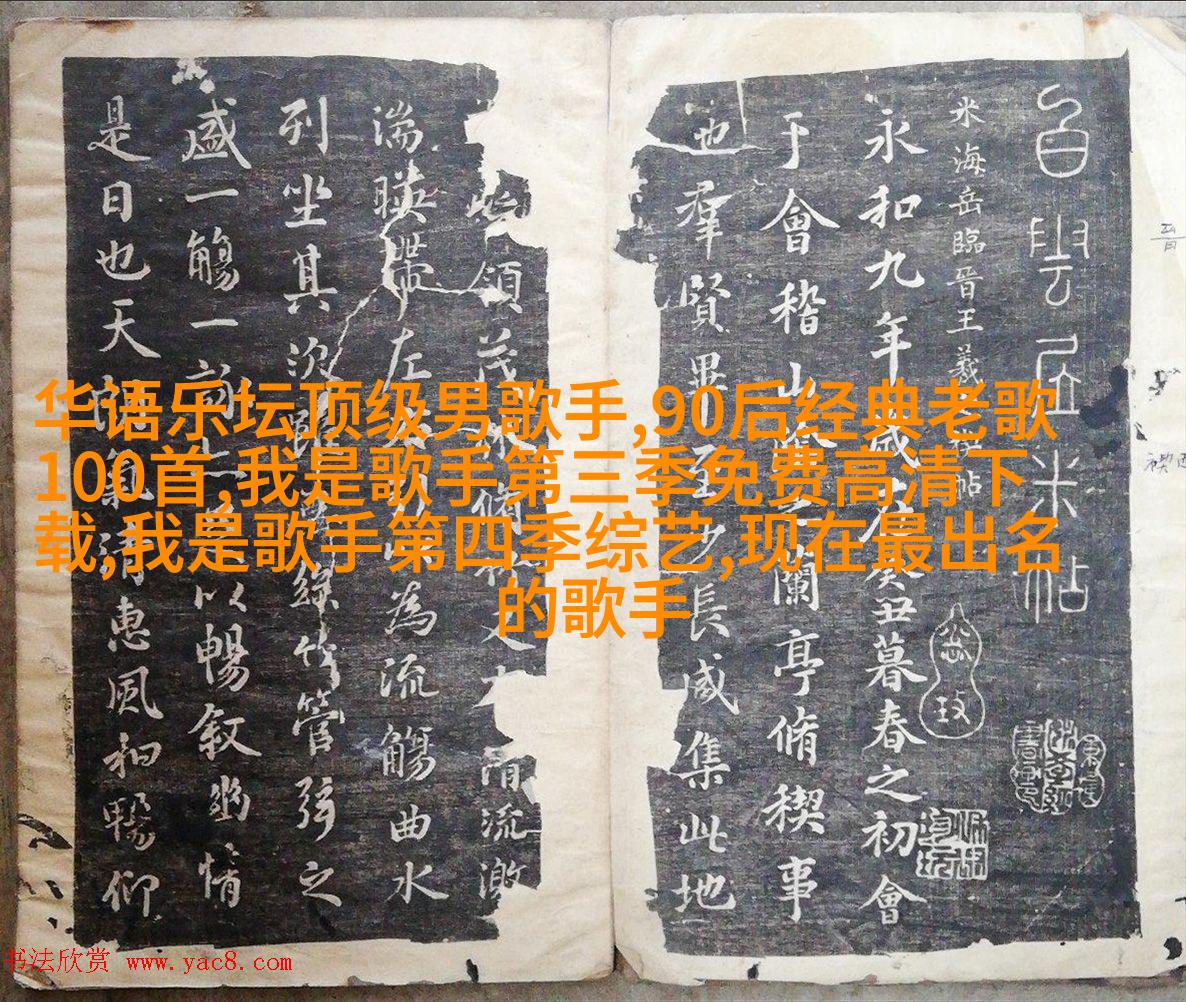 白雲居米帖
米海岳臨晉王羲禊帖
永和九年歲在癸丑暮春之初會
于會稽山陰之闌亭脩禊事
也羣賢畢至少長咸集此地
領茂林脩竹又有清流激
湍暎帶左右引以為流觴曲水
列坐其次雖無絲竹管弦之
盛一觴一詠亦足以暢敘幽情
是日也天朗氣清惠風和暢仰
华语乐坛顶级男歌手,90后经典老歌
100首,我是歌手第三季免费高清下
载,我是歌手第四季综艺,现在最出名
的歌手
书法欣赏 www.yac8.com